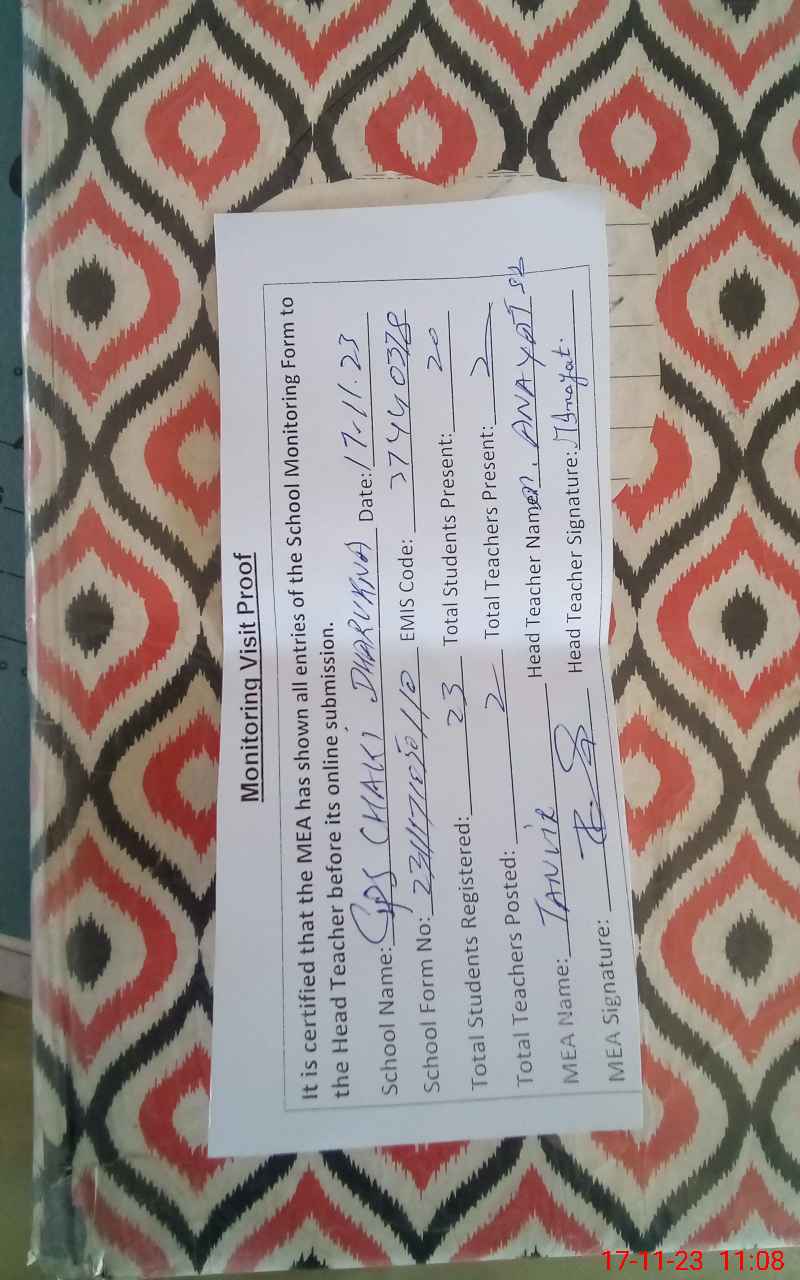 Monitoring Visit Proof
It is certified that the MEA has shown all entries of the School Monitoring Form to
the Head Teacher before its online submission.
School Name: GPS CHAKI DHARUKNA Date: 17-11-23
School Form No: EMIS Code: 37440378
Total Students Registered: 23 Total Students Present: 20
Total Teachers Posted: 2 Total Teachers Present: 2
MEA Name: TANVIR Head Teacher Name: M. ANAYAT
MEA Signature: Head Teacher Signature:
17-11-23 11:08